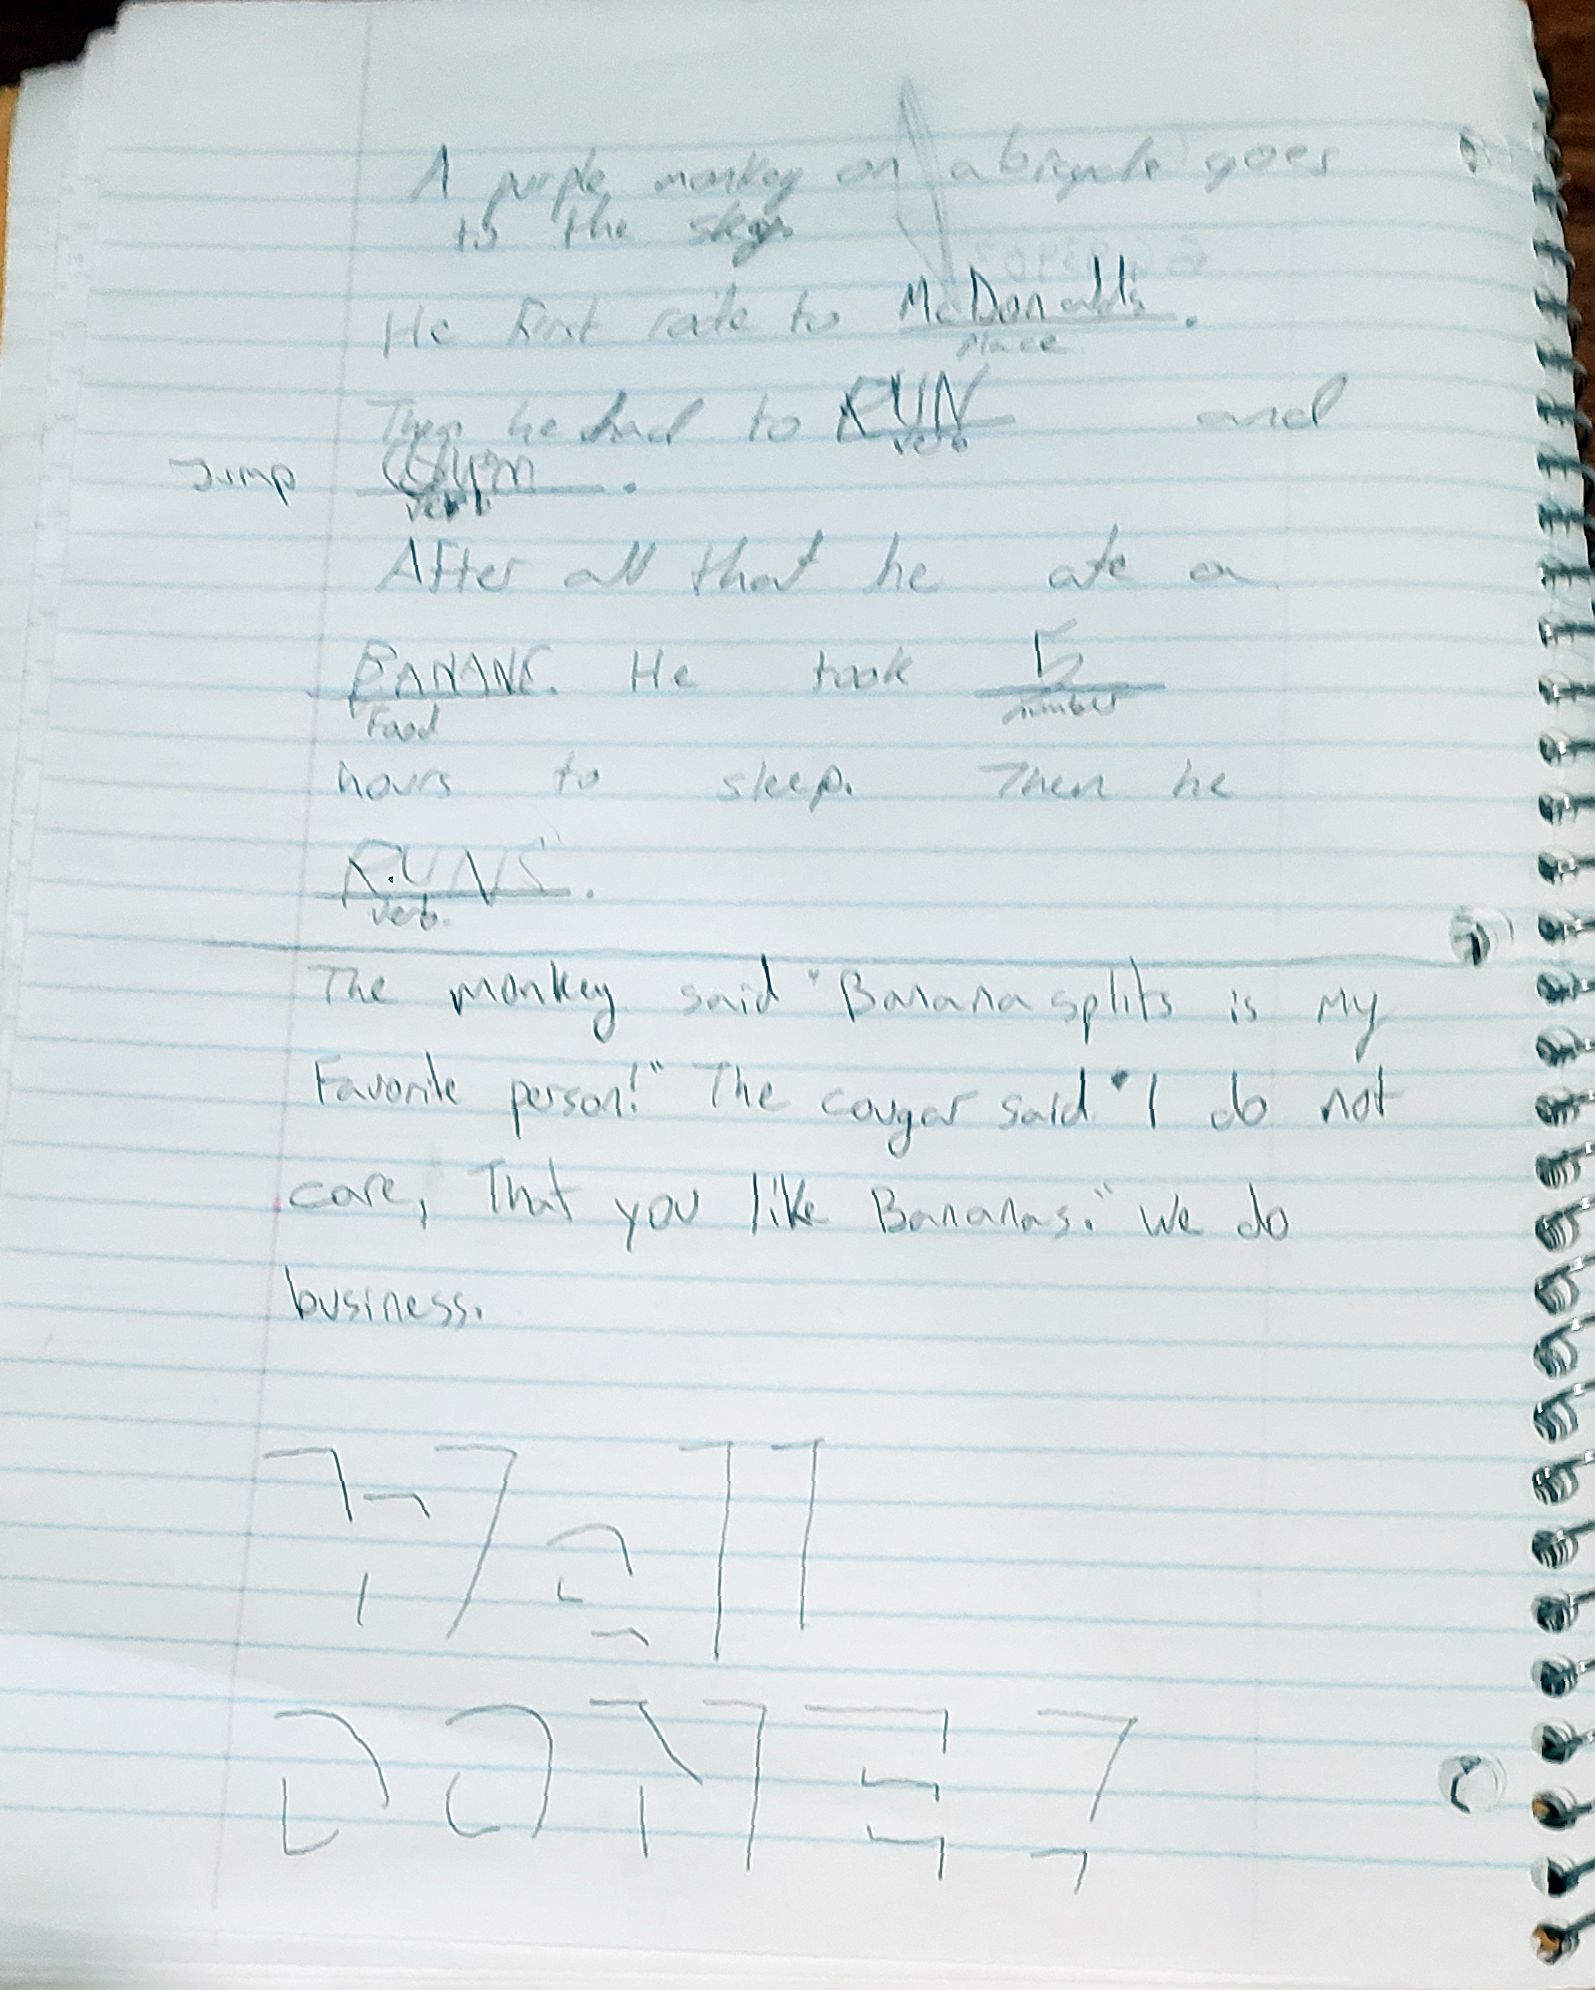 A purple monkey on a bicycle goes
to the sky.
He first rate to McDonald's.
place
Then he had to RUN and
verb
Jump
verb
After all that he ate a
BANANE. He took 5
Food number
hours to sleep. Then he
RUNS.
verb.
The monkey said "Banana splits is My
Favorite person!" The cougar said "I do not
care, That you like Bananas." We do
business.